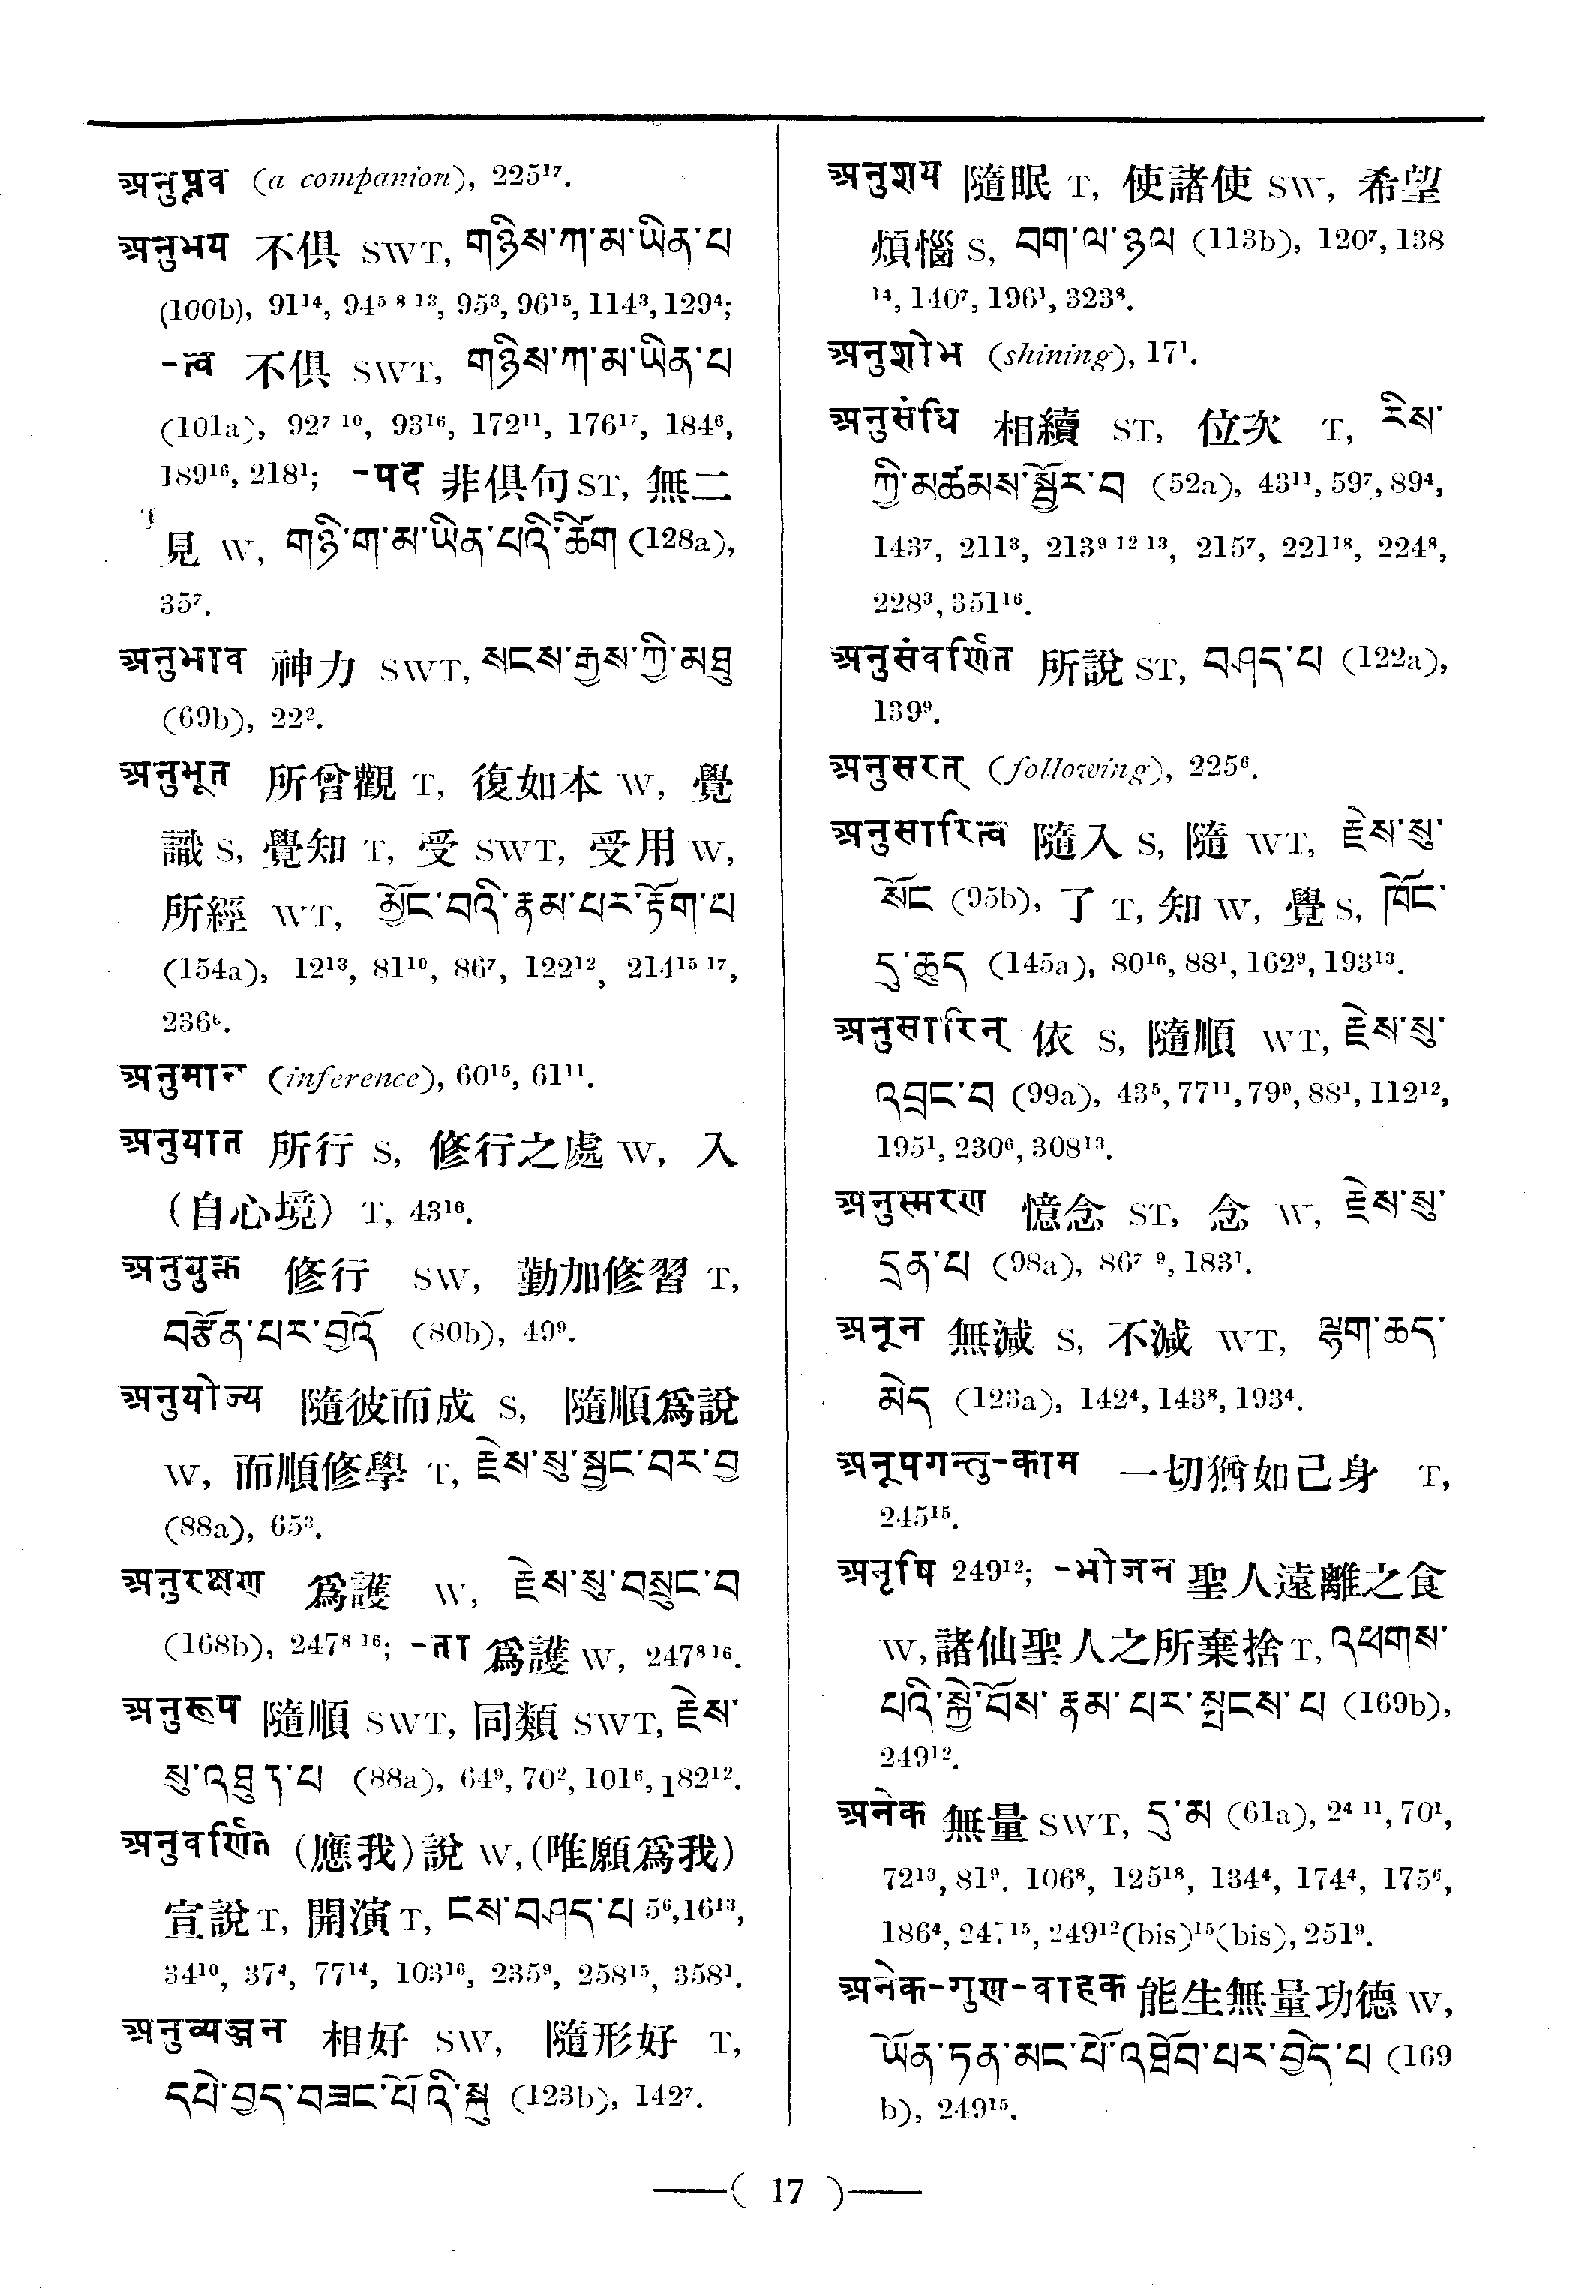 अनुप्लव (a companion), 225¹⁷.
अनुभय 不俱 SWT, གཉིས་ཀ་མ་ཡིན་པ
(100b), 91¹⁴, 94⁵ ⁸ ¹³, 95³, 96¹⁵, 114³, 129⁴;
-त्व 不俱 SWT, གཉིས་ཀ་མ་ཡིན་པ
(101a), 92⁷ ¹⁰, 93¹⁶, 172¹¹, 176¹⁷, 184⁶,
189¹⁶, 218¹; -पद 非俱句 ST, 無二
見 W, གཉི་ག་མ་ཡིན་པའི་ཚིག (128a),
35⁷.
अनुभाव 神力 SWT, སངས་རྒྱས་ཀྱི་མཐུ
(69b), 22².
अनुभूत 所曾觀 T, 復如本 W, 覺
識 S, 覺知 T, 受 SWT, 受用 W,
所經 WT, མྱོང་བའི་རྣམ་པར་རྟོག་པ
(154a), 12¹³, 81¹⁰, 86⁷, 122¹², 214¹⁵ ¹⁷,
236⁶.
अनुमान (inference), 60¹⁵, 61¹¹.
अनुयात 所行 S, 修行之處 W, 入
(自心境) T, 43¹⁶.
अनुयुक्त 修行 SW, 勤加修習 T,
བརྩོན་པར་བྱའོ (80b), 49⁹.
अनुयोज्य 隨彼而成 S, 隨順爲說
W, 而順修學 T, རྗེས་སུ་སྦྱང་བར་བྱ
(88a), 65³.
अनुरक्षण 爲護 W, རྗེས་སུ་བསྲུང་བ
(168b), 247⁸ ¹⁶; -ता 爲護 W, 247⁸ ¹⁶.
अनुरूप 隨順 SWT, 同類 SWT, རྗེས་
སུ་འཐུན་པ (88a), 64⁹, 70², 101⁶, 182¹².
अनुवर्णित (應我)說 W, (唯願爲我)
宣說 T, 開演 T, ངས་བཤད་པ 5⁶, 16¹³,
34¹⁰, 37⁴, 77¹⁴, 103¹⁶, 235⁹, 258¹⁵, 358¹.
अनुव्यञ्जन 相好 SW, 隨形好 T,
དཔེ་བྱད་བཟང་པོའི་སྐུ (123b), 142⁷.
अनुशय 隨眠 T, 使諸使 SW, 希望
煩惱 S, བག་ལ་ཉལ (113b), 120⁷, 138
¹⁴, 140⁷, 196¹, 323⁸.
अनुशोभ (shining), 17¹.
अनुसंधि 相續 ST, 位次 T, རིས་
ཀྱི་མཚམས་སྦྱོར་བ (52a), 43¹¹, 59⁷, 89⁴,
143⁷, 211³, 213⁹ ¹² ¹³, 215⁷, 221¹⁸, 224⁸,
228³, 351¹⁶.
अनुसंवर्णित 所說 ST, བཤད་པ (122a),
139⁹.
अनुसरत् (following), 225⁶.
अनुसारित्व 隨入 S, 隨 WT, རྗེས་སུ་
སོང (95b), 了 T, 知 W, 覺 S, ཁོང་
དུ་ཆུད (145a), 80¹⁶, 88¹, 162⁹, 193¹³.
अनुसारिन् 依 S, 隨順 WT, རྗེས་སུ་
འབྲང་བ (99a), 43⁵, 77¹¹, 79⁹, 88¹, 112¹²,
195¹, 230⁶, 308¹³.
अनुस्मरण 憶念 ST, 念 W, རྗེས་སུ་
དྲན་པ (98a), 86⁷ ⁹, 183¹.
अनून 無減 S, 不減 WT, ལྷག་ཆད་
མེད (123a), 142⁴, 143⁸, 193⁴.
अनूपगन्तु-काम 一切猶如己身 T,
245¹⁵.
अनृषि 249¹²; -भोजन 聖人遠離之食
W, 諸仙聖人之所棄捨 T, འཕགས་
པའི་སྐྱེ་བོས་རྣམ་པར་སྤངས་པ (169b),
249¹².
अनेक 無量 SWT, དུ་མ (61a), 2⁴ ¹¹, 70¹,
72¹³, 81⁹, 106⁸, 125¹⁸, 134⁴, 174⁴, 175⁶,
186⁴, 247¹⁵, 249¹²(bis)¹⁵(bis), 251⁹.
अनेक-गुण-वाहक 能生無量功德 W,
ཡོན་ཏན་མང་པོ་འཐོབ་པར་བྱེད་པ (169
b), 249¹⁵.
( 17 )